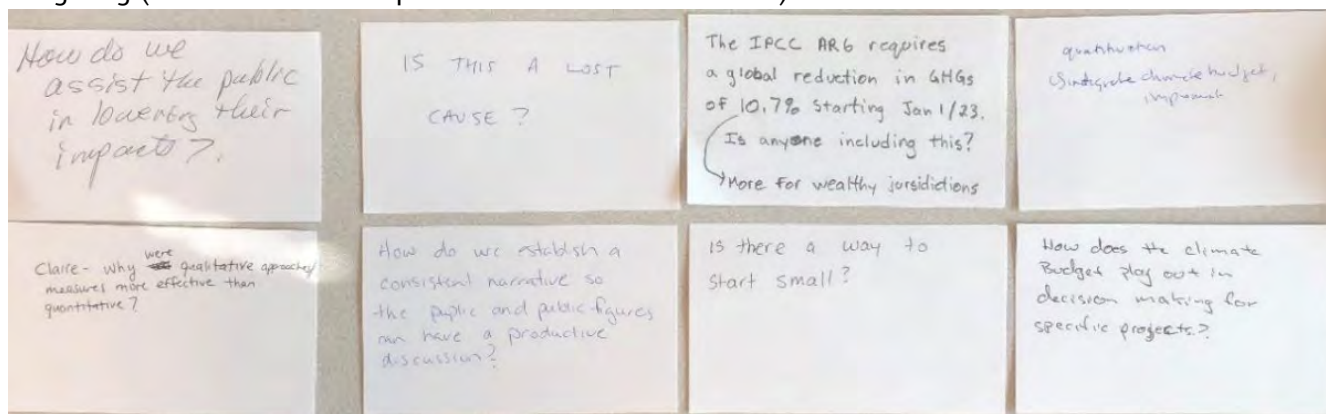 How do we
assist the public
in lowering their
impacts?
IS THIS A LOST
CAUSE?
The IPCC AR6 requires
a global reduction in GHGs
of 10.7% starting Jan 1/23.
Is anyone including this?
More for wealthy jursidictions
quantification
budget,
Claire - why were qualitative approaches/
measures more effective than
quantitative?
How do we establish a
consistent narrative so
the public and public figures
can have a productive
discussion?
is there a way to
start small?
How does the climate
Budget play out in
decision making for
specific projects.?